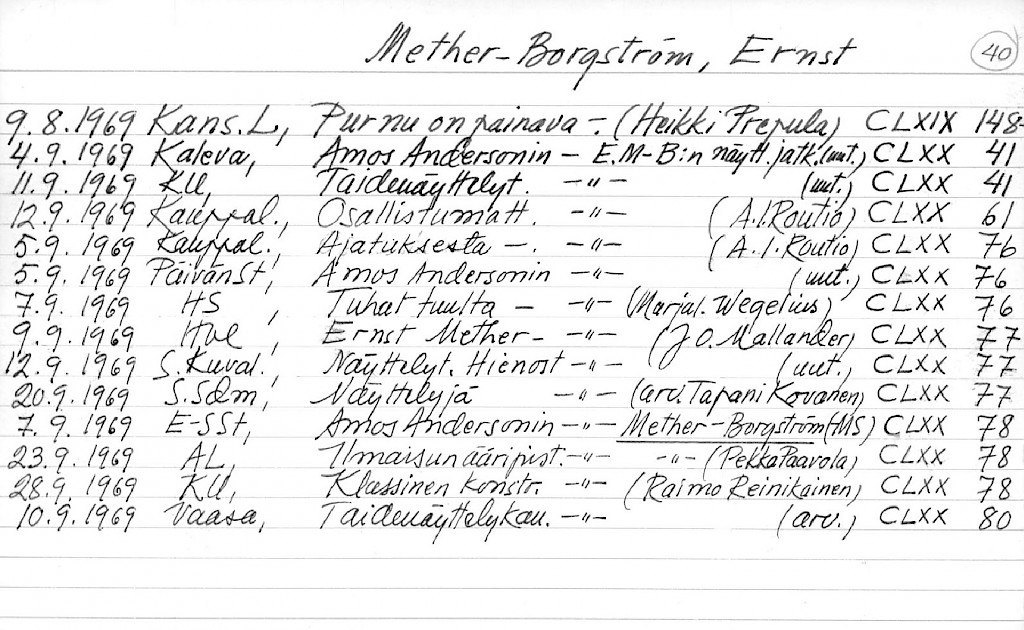 Mether-Borgström, Ernst 40
9.8.1969 Kans.L, Purnu on painava -. (Heikki Prepula) CLXIX 148-
4.9.1969 Kaleva, Amos Andersonin - E.M-B:n näytt.jatk.(uut.) CLXX 41
11.9.1969 KU, Taidenäyttelyt. -"- (uut.) CLXX 41
12.9.1969 Kauppal., Osallistumatt. -"- (A.I.Routio) CLXX 61
5.9.1969 Kauppal., Ajatuksesta -. -"- (A.I.Routio) CLXX 76
5.9.1969 PäivänSt, Amos Andersonin -"- (uut.) CLXX 76
7.9.1969 HS, Tuhat tuulta - -"- (Marjal.Wegelius) CLXX 76
9.9.1969 Hbl, Ernst Mether- -"- (J.O.Mallander) CLXX 77
12.9.1969 S.Kuval., Näyttelyt. Hienost -"- (uut.) CLXX 77
20.9.1969 S.Sdm, Näyttelyjä -"- (arv.Tapani Kovanen) CLXX 77
7.9.1969 E-SSt, Amos Andersonin -"- Mether-Borgström (MS) CLXX 78
23.9.1969 AL, Ilmaisun ääripist. -"- -"- (Pekka Paavola) CLXX 78
28.9.1969 KU, Klassinen konstr. -"- (Raimo Reinikainen) CLXX 78
10.9.1969 Vaasa, Taidenäyttelykau. -"- (arv.) CLXX 80